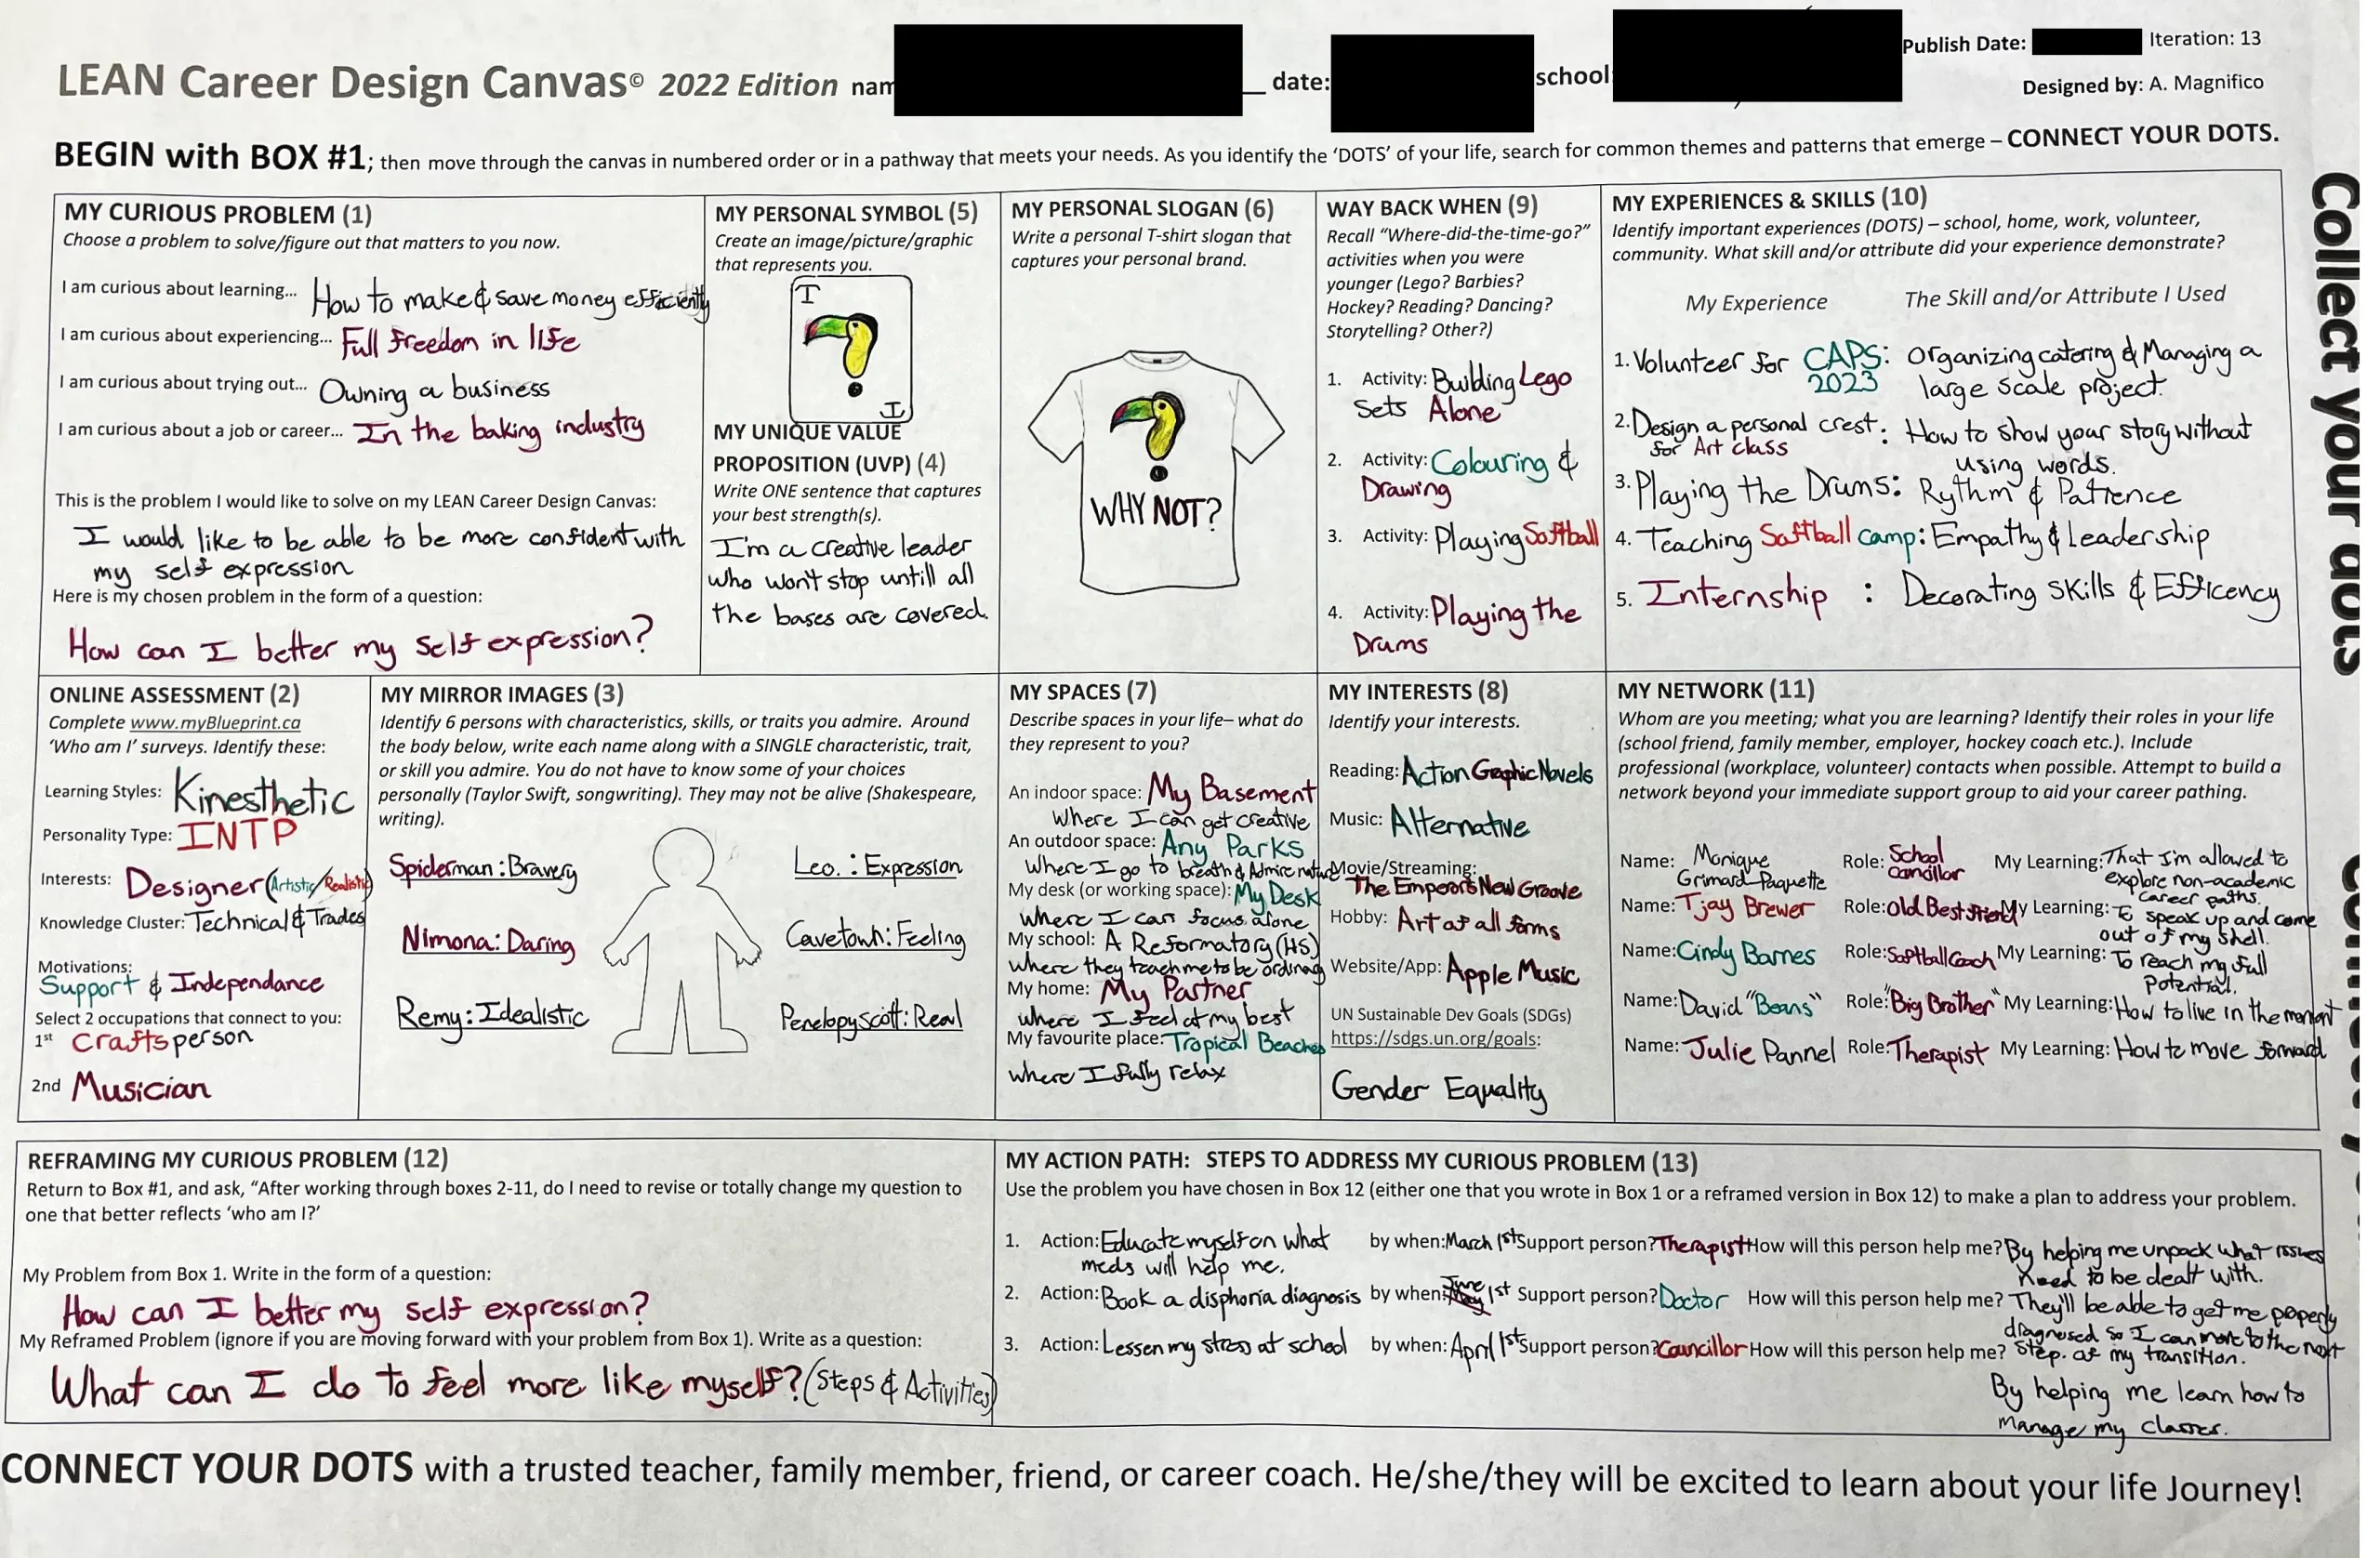 LEAN Career Design Canvas© 2022 Edition nam
date:
school:
Publish Date:
Iteration: 13
Designed by: A. Magnifico
BEGIN with BOX #1; then move through the canvas in numbered order or in a pathway that meets your needs. As you identify the ‘DOTS’ of your life, search for common themes and patterns that emerge – CONNECT YOUR DOTS.
MY CURIOUS PROBLEM (1)
Choose a problem to solve/figure out that matters to you now.
I am curious about learning... How to make & save money efficiently
I am curious about experiencing... Full freedom in life
I am curious about trying out... Owning a business
I am curious about a job or career... In the baking industry
This is the problem I would like to solve on my LEAN Career Design Canvas:
I would like to be able to be more confident with
my self expression
Here is my chosen problem in the form of a question:
How can I better my self expression?
MY PERSONAL SYMBOL (5)
Create an image/picture/graphic
that represents you.
I
I
MY UNIQUE VALUE
PROPOSITION (UVP) (4)
Write ONE sentence that captures
your best strength(s).
I'm a creative leader
who won't stop untill all
the bases are covered.
MY PERSONAL SLOGAN (6)
Write a personal T-shirt slogan that
captures your personal brand.
WHY NOT?
WAY BACK WHEN (9)
Recall “Where-did-the-time-go?”
activities when you were
younger (Lego? Barbies?
Hockey? Reading? Dancing?
Storytelling? Other?)
1. Activity: Building Lego
Sets Alone
2. Activity: Colouring &
Drawing
3. Activity: Playing Softball
4. Activity: Playing the
Drums
MY EXPERIENCES & SKILLS (10)
Identify important experiences (DOTS) – school, home, work, volunteer,
community. What skill and/or attribute did your experience demonstrate?
My Experience The Skill and/or Attribute I Used
1. Volunteer for CAPS: Organizing catering & Managing a
2023 large scale project.
2. Design a personal crest: How to show your story without
for Art class using words.
3. Playing the Drums: Rythm & Patience
4. Teaching Softball camp: Empathy & Leadership
5. Internship : Decorating skills & Efficency
ONLINE ASSESSMENT (2)
Complete www.myBlueprint.ca
‘Who am I’ surveys. Identify these:
Learning Styles: Kinesthetic
Personality Type: INTP
Interests: Designer (Artistic/Realistic)
Knowledge Cluster: Technical & Trades
Motivations:
Support & Independance
Select 2 occupations that connect to you:
1st Craftsperson
2nd Musician
MY MIRROR IMAGES (3)
Identify 6 persons with characteristics, skills, or traits you admire. Around
the body below, write each name along with a SINGLE characteristic, trait,
or skill you admire. You do not have to know some of your choices
personally (Taylor Swift, songwriting). They may not be alive (Shakespeare,
writing).
Spiderman: Bravery
Leo.: Expression
Nimona: Daring
Cavetown: Feeling
Remy: Idealistic
Penelopy scott: Real
MY SPACES (7)
Describe spaces in your life– what do
they represent to you?
An indoor space: My Basement
Where I can get creative
An outdoor space: Any Parks
Where I go to breath & Admire nature
My desk (or working space): My Desk
Where I can focus alone
My school: A Reformatory (HS)
Where they teach me to be ordinary
My home: My Partner
where I feel at my best
My favourite place: Tropical Beaches
where I fully relax
MY INTERESTS (8)
Identify your interests.
Reading: Action Graphic Novels
Music: Alternative
Movie/Streaming:
The Emperors New Groove
Hobby: Art of all forms
Website/App: Apple Music
UN Sustainable Dev Goals (SDGs)
https://sdgs.un.org/goals:
Gender Equality
MY NETWORK (11)
Whom are you meeting; what you are learning? Identify their roles in your life
(school friend, family member, employer, hockey coach etc.). Include
professional (workplace, volunteer) contacts when possible. Attempt to build a
network beyond your immediate support group to aid your career pathing.
Name: Monique Grimard-Paquette Role: School Cancillor My Learning: That I'm allowed to
explore non-academic
career paths.
Name: Tjay Brewer Role: Old Best friend My Learning: To speak up and come
out of my shell.
Name: Cindy Barnes Role: Softball Coach My Learning: To reach my full
Potential.
Name: David "Beans" Role: "Big Brother" My Learning: How to live in the moment
Name: Julie Pannel Role: Therapist My Learning: How to move forward
REFRAMING MY CURIOUS PROBLEM (12)
Return to Box #1, and ask, “After working through boxes 2-11, do I need to revise or totally change my question to
one that better reflects ‘who am I?’
My Problem from Box 1. Write in the form of a question:
How can I better my self expression?
My Reframed Problem (ignore if you are moving forward with your problem from Box 1). Write as a question:
What can I do to feel more like myself? (Steps & Activities)
MY ACTION PATH: STEPS TO ADDRESS MY CURIOUS PROBLEM (13)
Use the problem you have chosen in Box 12 (either one that you wrote in Box 1 or a reframed version in Box 12) to make a plan to address your problem.
1. Action: Educate myself on what by when: March 1st Support person? Therapist How will this person help me? By helping me unpack what issues
meds will help me. need to be dealt with.
2. Action: Book a disphoria diagnosis by when: June 1st Support person? Doctor How will this person help me? They'll be able to get me properly
diagnosed so I can move to the next
step. of my transition.
3. Action: Lessen my stress at school by when: April 1st Support person? Councillor How will this person help me?
By helping me learn how to
manage my classes.
CONNECT YOUR DOTS with a trusted teacher, family member, friend, or career coach. He/she/they will be excited to learn about your life Journey!
Collect your dots